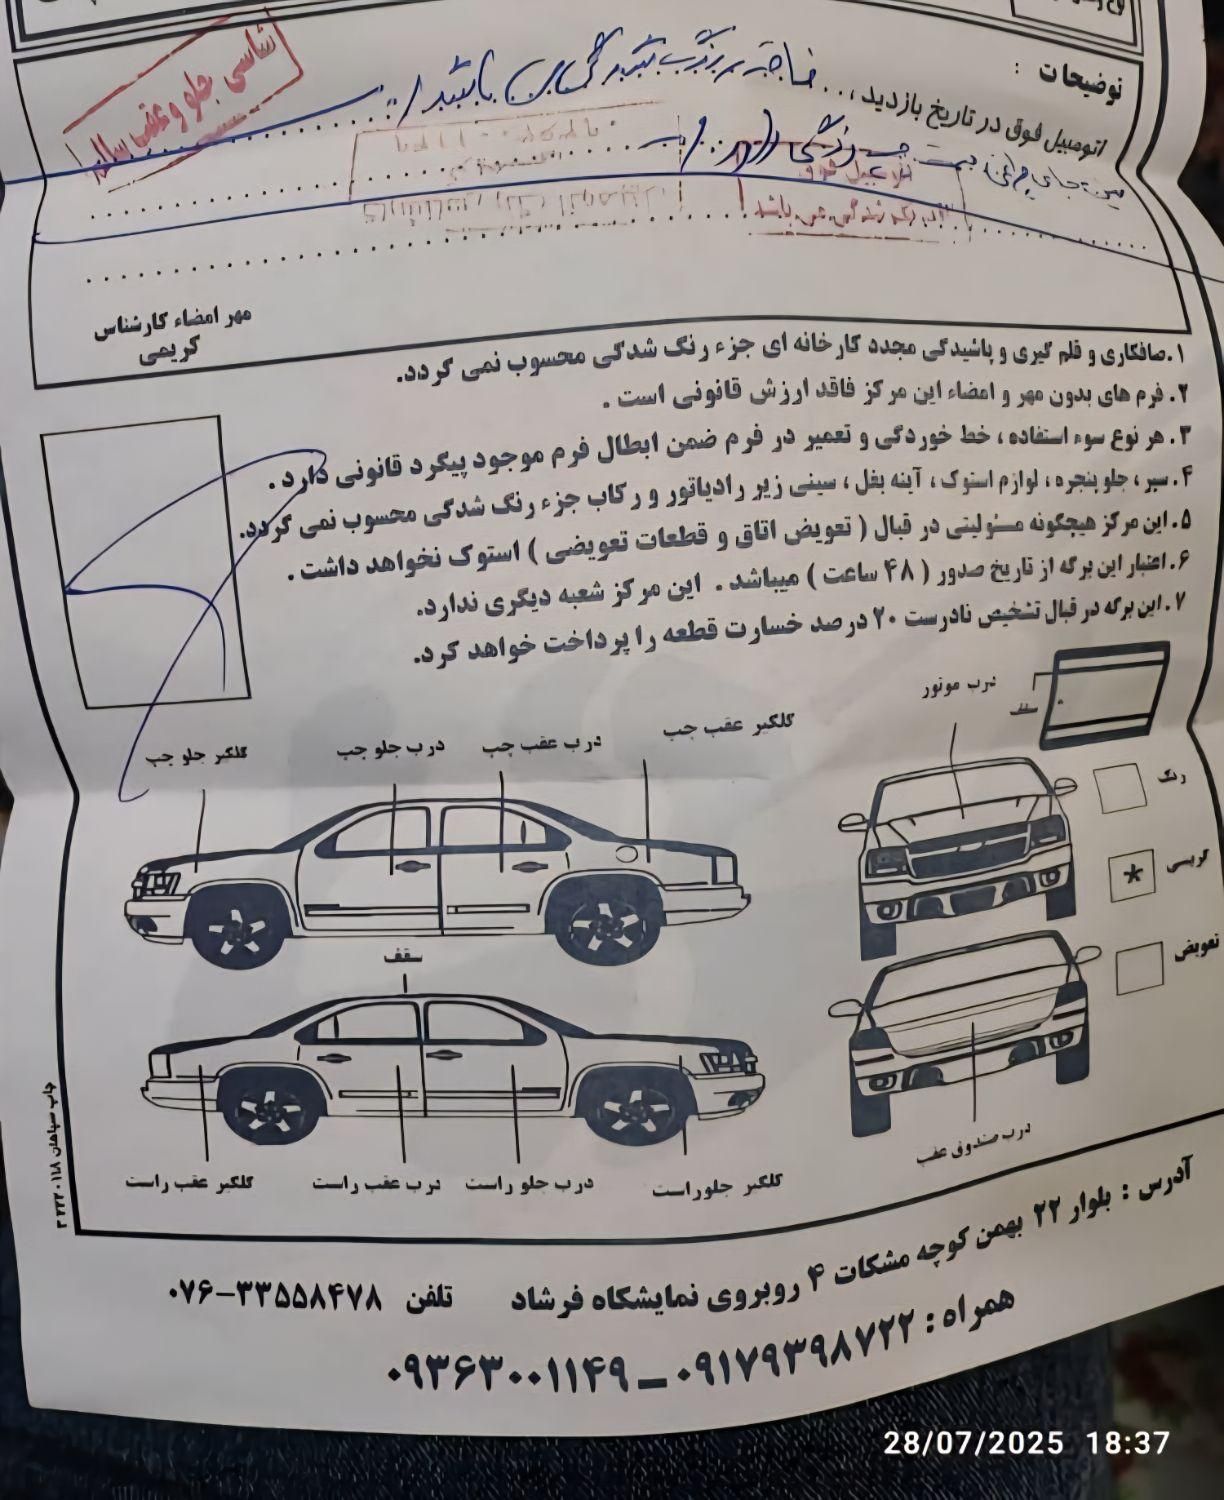 توضیحات :
شاسی جلو و عقب سالم
اتومبیل فوق در تاریخ بازدید
اتومبیل فوق
می باشد
مهر امضاء کارشناس
کریمی
۱.صافکاری و قلم گیری و پاشیدگی مجدد کارخانه ای جزء رنگ شدگی محسوب نمی گردد.
۲. فرم های بدون مهر و امضاء این مرکز فاقد ارزش قانونی است .
۳. هر نوع سوء استفاده ، خط خوردگی و تعمیر در فرم ضمن ابطال فرم موجود پیگرد قانونی دارد .
۴. سپر ، جلو پنجره ، لوازم استوک ، آینه بغل ، سینی زیر رادیاتور و رکاب جزء رنگ شدگی محسوب نمی گردد.
۵. این مرکز هیچگونه مسئولیتی در قبال ( تعویض اتاق و قطعات تعویضی ) استوک نخواهد داشت .
۶. اعتبار این برگه از تاریخ صدور ( ۴۸ ساعت ) میباشد . این مرکز شعبه دیگری ندارد.
۷. این برگه در قبال تشخیص نادرست ۲۰ درصد خسارت قطعه را پرداخت خواهد کرد.
درب موتور
سقف
گلگیر عقب چپ
درب عقب چپ
درب جلو چپ
گلگیر جلو چپ
رنگ
گریسی
*
تعویض
سقف
گلگیر جلو راست
درب جلو راست
درب عقب راست
گلگیر عقب راست
درب صندوق عقب
چاپ سپاهان ۳۲۲۲۰۱۱۸
آدرس : بلوار ۲۲ بهمن کوچه مشکات ۴ روبروی نمایشگاه فرشاد تلفن ۰۷۶-۳۳۵۵۸۴۷۸
همراه : ۰۹۱۷۹۳۹۸۷۲۲ - ۰۹۳۶۳۰۰۱۱۴۹
28/07/2025 18:37